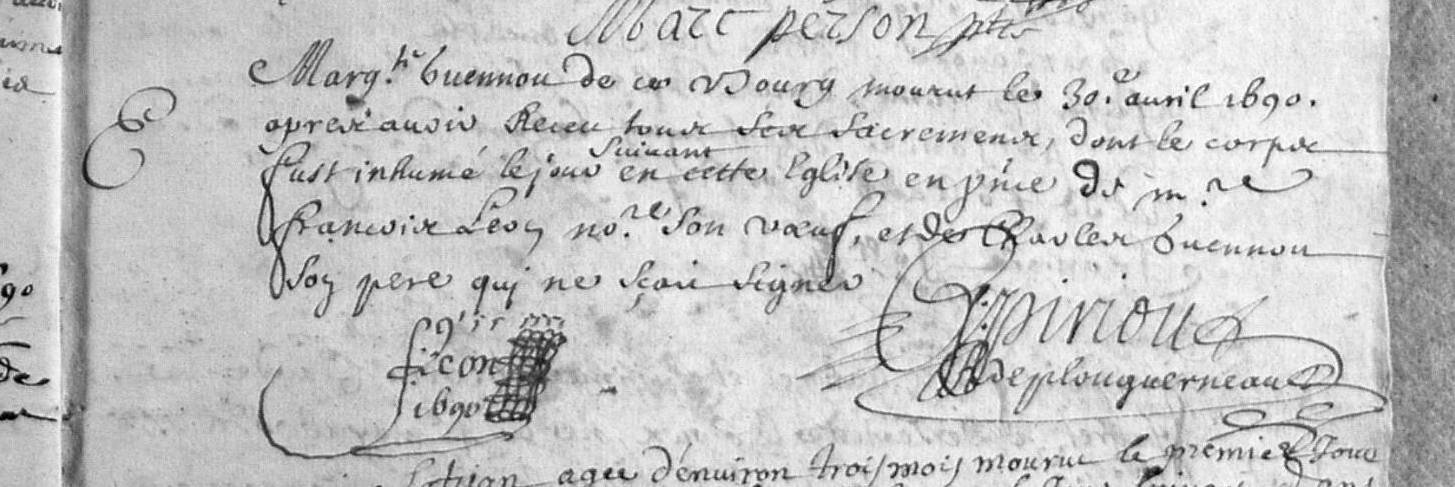 Marc person ptre
Marg.te Guennou de ce Bourg mourut le 30.e auril 1690.
apres auoir Receu tous ses sacremens, dont le corps
fust inhumé le jour suiuant en cette Eglise en pñce de m.re
francois Leon no.re son vœuf, et de Charles Guennou
son pere qui ne sçait signer
f leon
1690
piriou
de plouguerneau
agee d'enuiron trois mois mourut le premier Jour